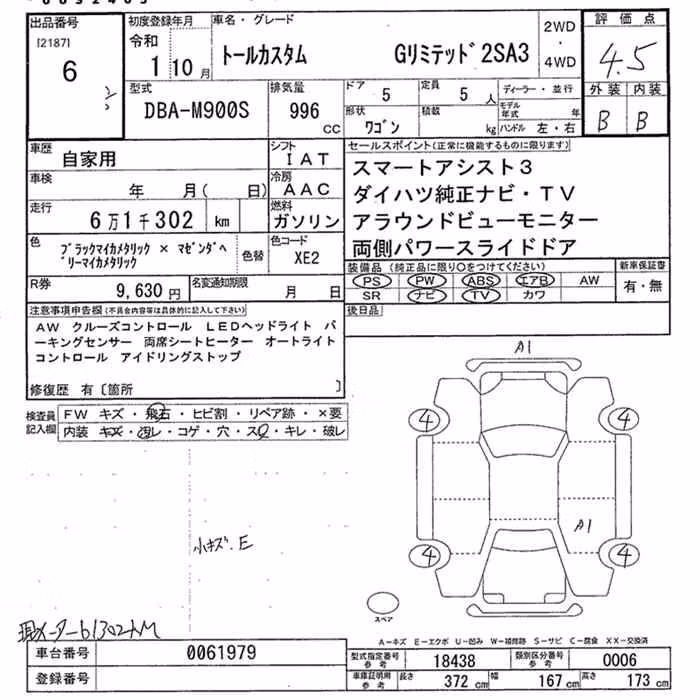 出品番号 初度登録年月 車名・グレード 2WD・4WD 評価点
[2187] 令和
6 1 10月 トールカスタム Gリミテッド2SA3 4.5
型式 排気量 ドア 5 定員 5人 ディーラー・並行 外装 内装
DBA-M900S 996 CC 形状 ワゴン 積載 kg モデル年式 年 ハンドル 左・右 B B
車歴 自家用 シフト IAT セールスポイント(正常に機能するものに限ります)
車検 年 月( 日) 冷房 AAC スマートアシスト3
ダイハツ純正ナビ・TV
走行 6万1千302 km 燃料 ガソリン アラウンドビューモニター
両側パワースライドドア
色 ブラックマイカメタリック × マゼンダベリーマイカメタリック 色替 色コード XE2
装備品(純正品に限り○をつけてください) 新車保証書
PS PW ABS エアB AW 有・無
SR ナビ TV カワ
R券 9,630円 名変通知期限 月 日
後日品
注意事項申告欄(不具合内容等は具体的に記入して下さい)
AW クルーズコントロール LEDヘッドライト パ
ーキングセンサー 両席シートヒーター オートライト
コントロール アイドリングストップ
修復歴 有〔箇所 〕
検査員記入欄 FW キズ・飛石・ヒビ割・リペア跡・×要
内装 キズ・汚レ・コゲ・穴・スレ・キレ・破レ
A1
4 4
A1
小キズ.E
4 4
スペア
現メーター61302KM
A−キズ E−エクボ U−凹み W−補修跡 S−サビ C−腐食 XX−交換済
車台番号 0061979 型式指定番号参考 18438 類別区分番号参考 0006
登録番号 車庫証明用参考 長さ 372 cm 幅 167 cm 高さ 173 cm